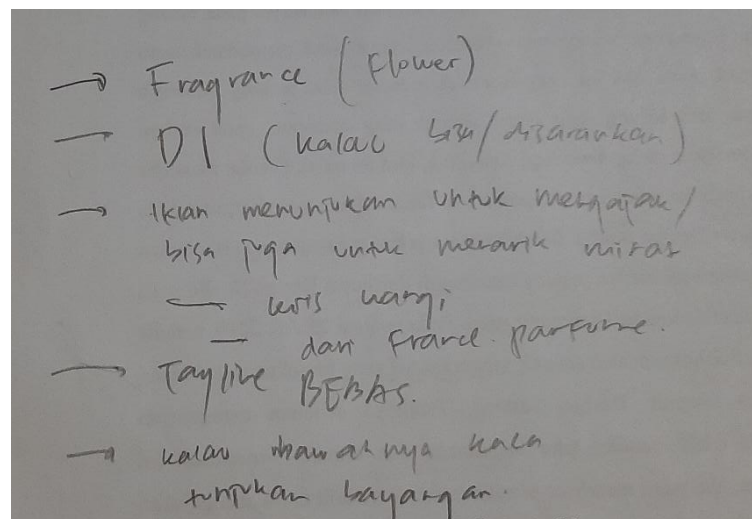 → Fragrance (Flower)
→ DI (kalau bisa/disarankan)
→ Iklan menunjukan untuk mengajak/
bisa juga untuk menarik minat
wangi
— dari France parfume.
→ Tagline BEBAS.
→ kalau dibawahnya kaca
tunjukan bayangan.